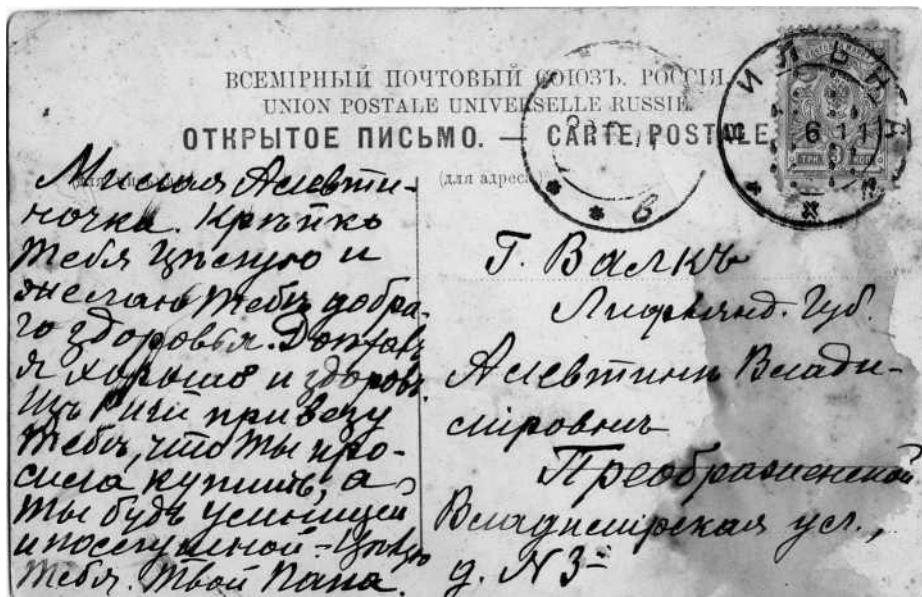 ВСЕМІРНЫЙ ПОЧТОВЫЙ СОЮЗЪ. РОССІЯ.
UNION POSTALE UNIVERSELLE RUSSIE.
ОТКРЫТОЕ ПИСЬМО. — CARTE POSTALE
ВИЛЬНА
6 11
ТРИ 3 КОП
(для адреса)
Милая Алевти-
ночка. Крѣпко
тебя цѣлую и
желаю тебѣ добра-
го здоровья. Доѣхавъ
я хорошо и здоровъ.
Изъ Риги привезу
тебѣ, что ты про-
сила купить, а
ты будь умницей
и послушной - Цѣлую
тебя. Твой Папа.
Г. Валкъ
Лифлянд. Губ.
Алевтинѣ Влади-
мировнѣ
Преображенской
Владимірская ул.,
д. N 3